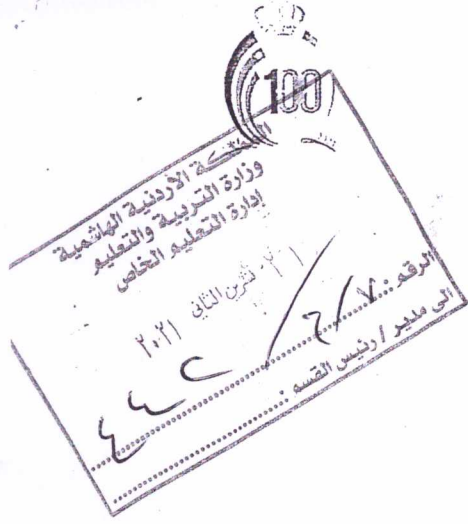 100
المملكة الأردنية الهاشمية
وزارة التربية والتعليم
إدارة التعليم الخاص
تشرين الثاني ٢٠٢١
الرقم: ٧/٦/٤٤٢
الى مدير / رئيس القسم :